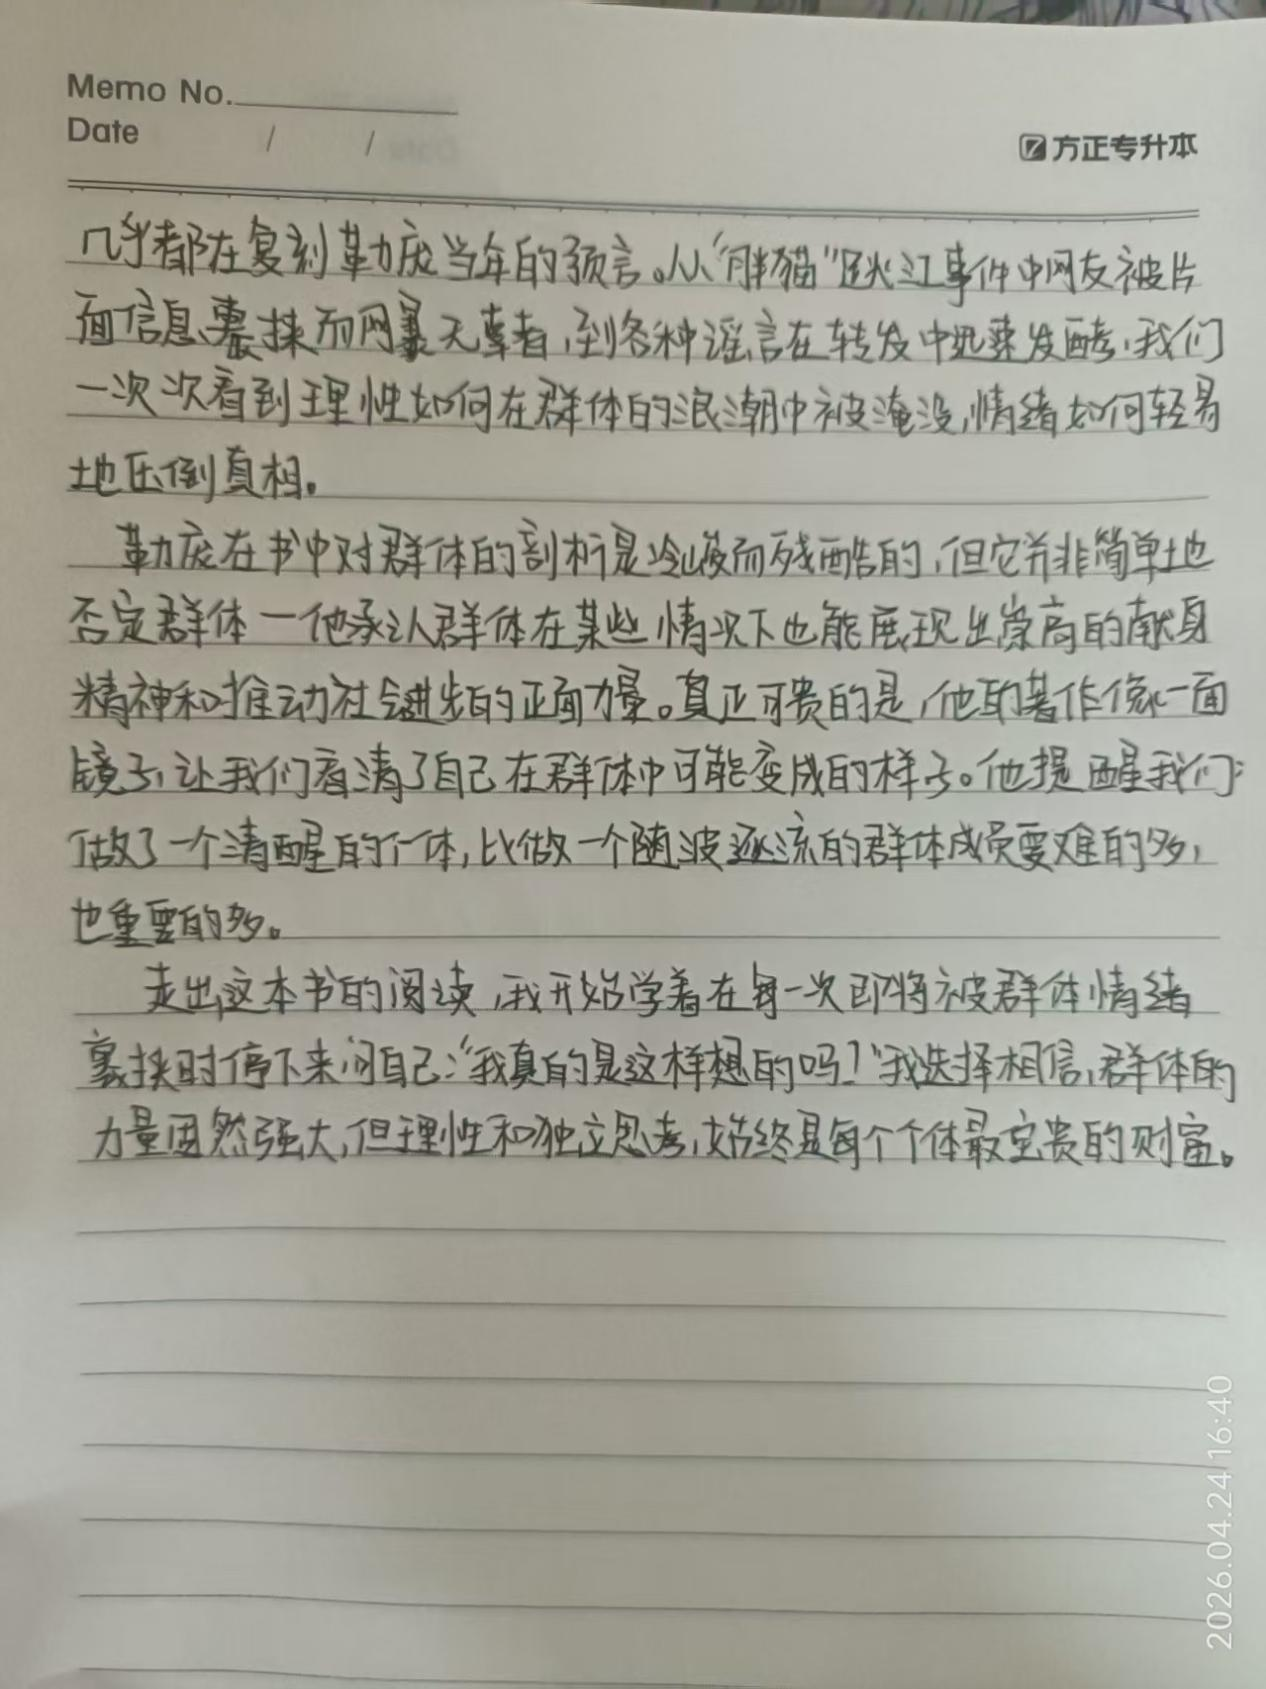 Memo No.
Date / /
方正专升本
几乎都在复刻勒庞当年的预言。从“胖猫”跳江事件中网友被片
面信息裹挟而网暴无辜者,到各种谣言在转发中迅速发酵,我们
一次次看到理性如何在群体的浪潮中被淹没,情绪如何轻易
地压倒真相。
勒庞在书中对群体的剖析是冷峻而残酷的,但它并非简单地
否定群体一他承认群体在某些情况下也能展现出崇高的献身
精神和推动社会进步的正面力量。真正可贵的是,他的著作像一面
镜子,让我们看清了自己在群体中可能变成的样子。他提醒我们:
做了一个清醒的个体,比做一个随波逐流的群体成员要难的多,
也重要的多。
走出这本书的阅读,我开始学着在每一次即将被群体情绪
裹挟时停下来问自己:“我真的是这样想的吗!”我选择相信,群体的
力量固然强大,但理性和独立思考,始终是每个个体最宝贵的财富。
2026.04.24 16:40